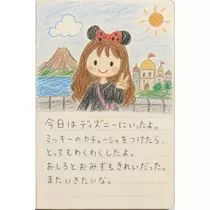 今日はディズニーにいったよ。
ミッキーのカチューシャをつけたら、
とってもわくわくしたよ。
おしろとおみずもきれいだった。
またいきたいな。